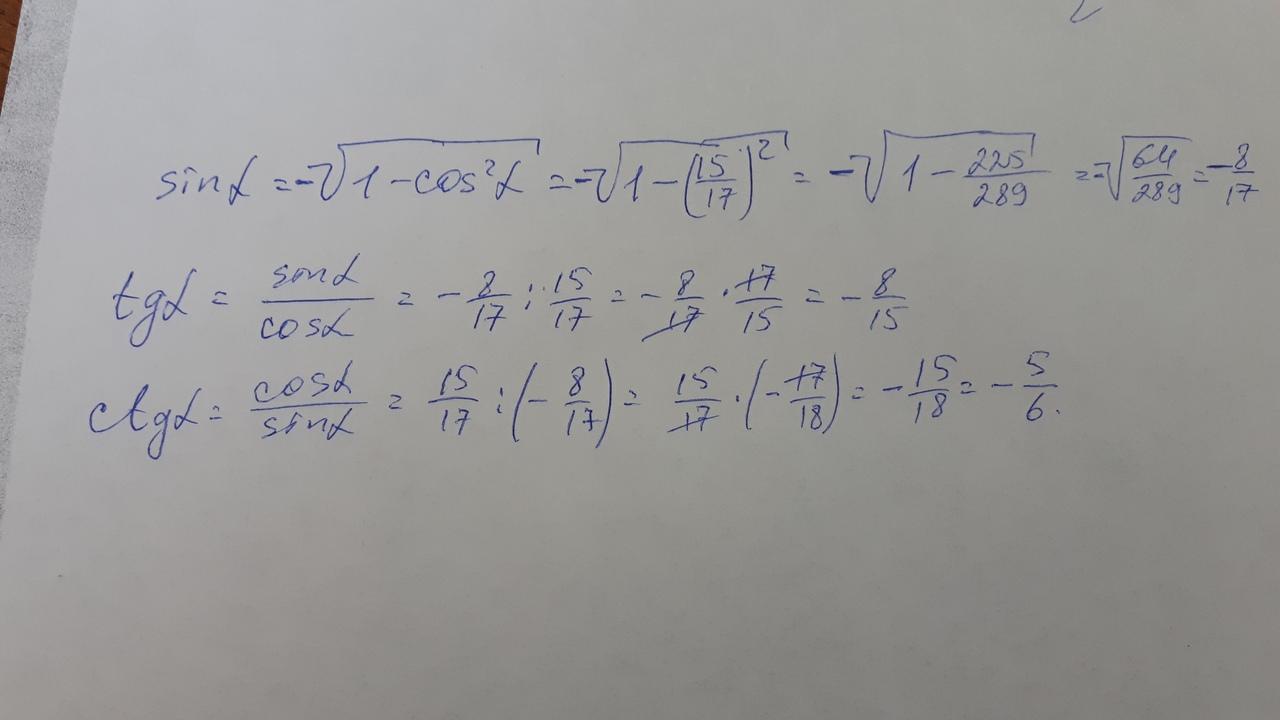 sinα = -√(1-cos²α) = -√(1-(15/17)²) = -√(1-225/289) = -√(64/289) = -8/17
tgα = sinα/cosα = -8/17 : 15/17 = -8/17 · 17/15 = -8/15
ctgα = cosα/sinα = 15/17 : (-8/17) = 15/17 · (-17/18) = -15/18 = -5/6.